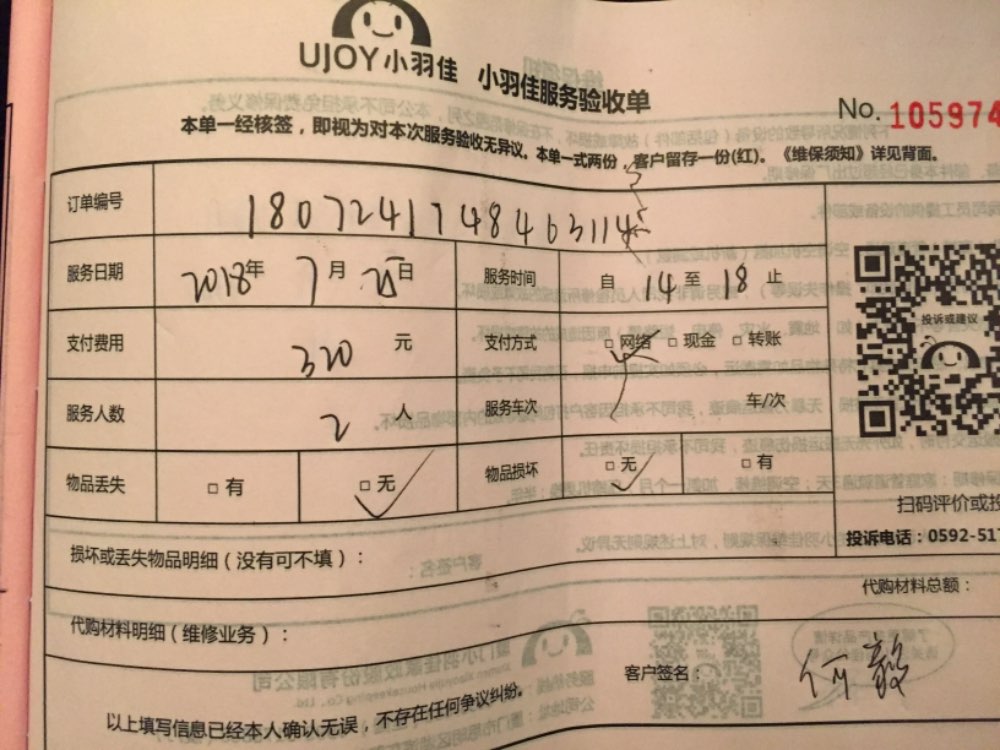 UJOY小羽佳 小羽佳服务验收单
No. 105974
本单一经核签，即视为对本次服务验收无异议。本单一式两份，客户留存一份(红)。《维保须知》详见背面。
订单编号 18072417484631145
服务日期 2018年 7月 25日 服务时间 自 14 至 18 止
支付费用 320 元 支付方式 □ 网络 □ 现金 □ 转账
投诉或建议
服务人数 2 人 服务车次 车/次
物品丢失 □ 有 □ 无 物品损坏 □ 无 □ 有
扫码评价或投
投诉电话：0592-517
损坏或丢失物品明细（没有可不填）：
代购材料总额：
代购材料明细（维修业务）：
客户签名： 何毅
以上填写信息已经本人确认无误，不存在任何争议纠纷。